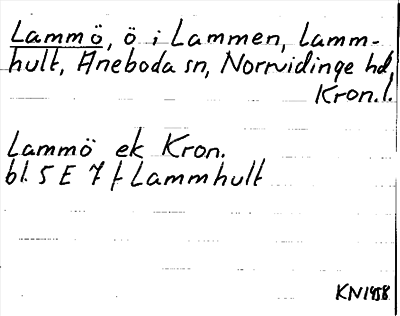 Lammö, ö i Lammen, Lamm-
hult, Aneboda sn, Norrvidinge hd,
Kron.l.
Lammö ek Kron.
bl. 5 E 7 f Lammhult
KN1958